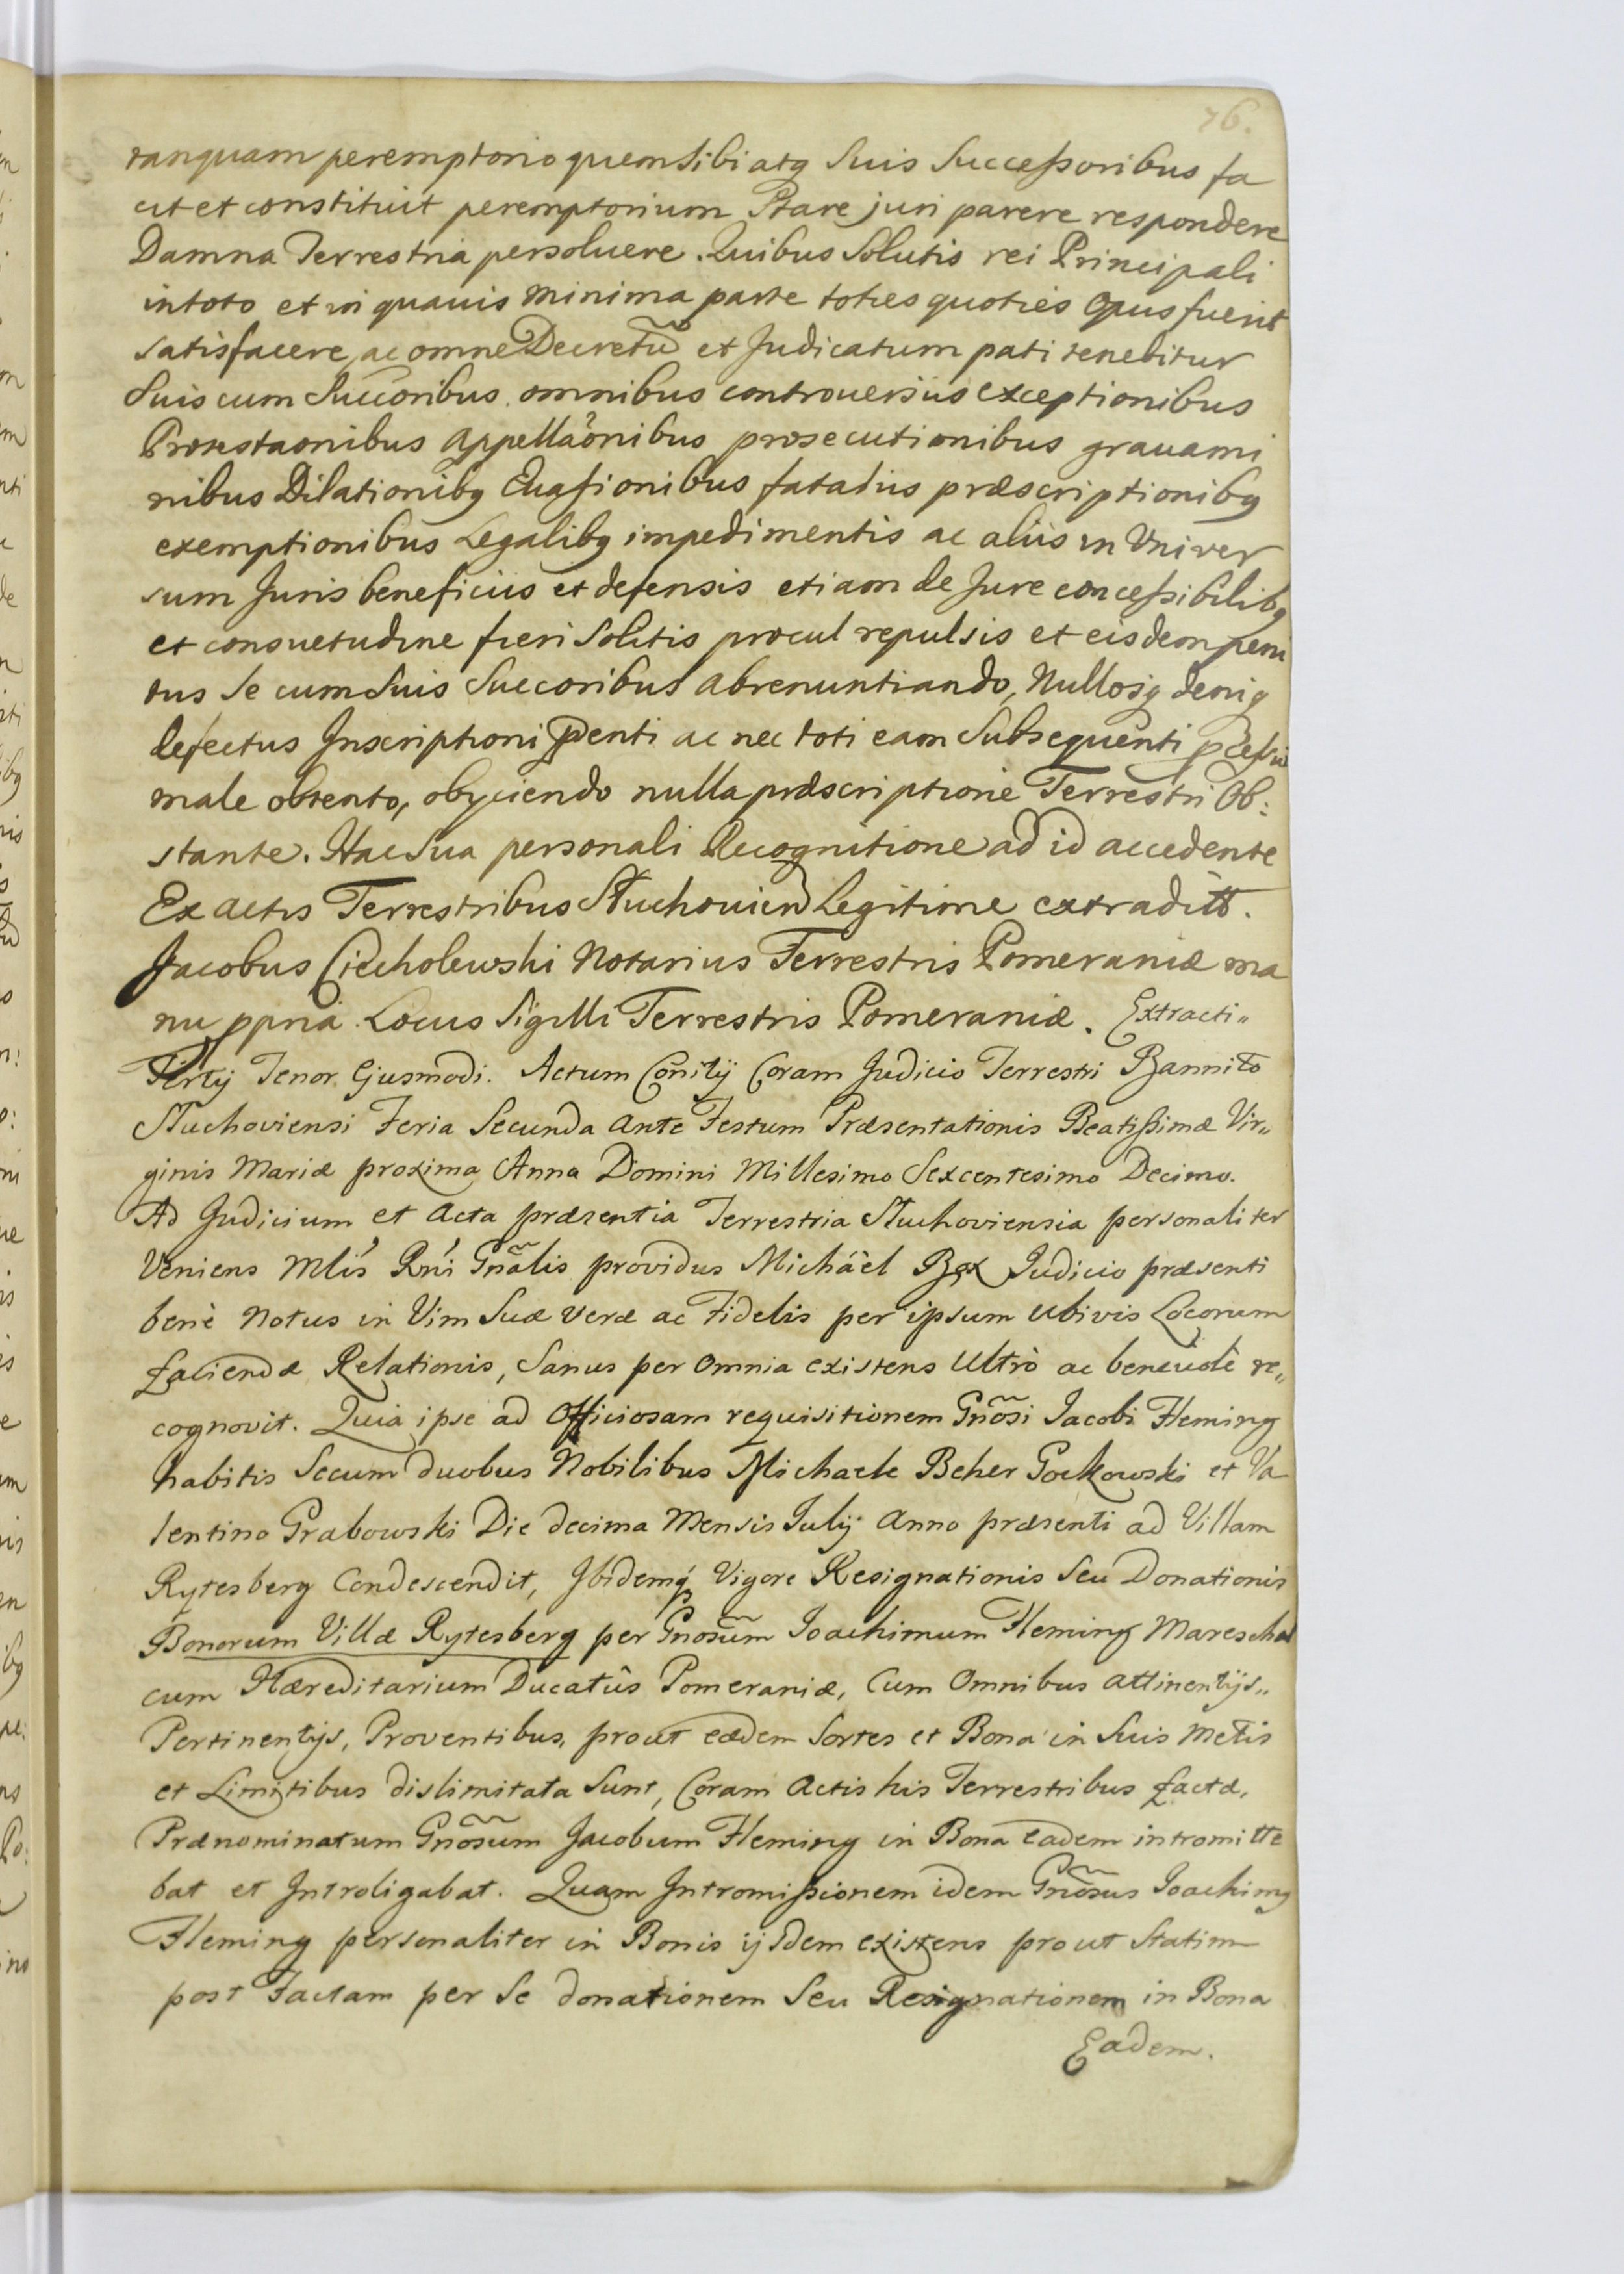 76.
tanquam peremptorio quem sibi atq suis Successoribus fa
cit et constituit peremptorium Stare juri parere respondere
Damna Terrestria persoluere. Quibus Solutis rei Principali
in toto et in quauis minima parte toties quoties Opus fuerit
satisfacere, ac omne Decretū et Judicatum pati tenebitur
suis cum Succoribus omnibus controuersiis exceptionibus
Protestaonibus Appellaõnibus prosecutionibus grauami
nibus Dilationibq Euasionibus fatalius præscriptionibq
exemptionibus Legalibq impedimentis ac aliis in Vniver
sum Juris beneficiis et defensis etiam de Jure concessibilibq
et consuetudine fieri Solitis procul repulsis et eisdem peni
tus Se cum Suis Succoribus abrenuntiando, Nullosq deniq
defectus Inscriptioni pñti ac nec toti eam Subsequenti
male obtento, obyciendo nulla præscriptione Terrestri Ob:
stante. Hac Sua personali Recognitione ad id accedente
Ex Actis Terrestribus Stuchouien Legitime extraditt.
Jacobus Ciecholewski Notarius Terrestris Pomeraniæ ma
nu ppria. Locus Sigilli Terrestris Pomeraniæ. Extracti„
Tertij Tenor Ejusmodi. Actum Cõnitij Coram Judicio Terrestri Bannito
Stuchoviensi Feria Secunda Ante Festum Præsentationis Beatissimæ Vir„
ginis Mariæ proxima Anna Domini Millesimo Sexcentesimo Decimo.
Ad Judicium et Acta præsentia Terrestria Stuchoviensia personaliter
Veniens Mlis Rni Gnãlis providus Michâel Bąk Judicio præsenti
benè Notus in Vim Suæ Veræ ac Fidelis per ipsum Ubivis Locorum
faciendæ Relationis, Sanus per Omnia existens Ultrò ac benevolè re„
cognovit. Quia ipse ad Officiosam requisitionem Gnõsi Jacobi Fleming
habitis Secum duobus Nobilibus Michaele Beher Gockowski et Va
lentino Grabowski Die decima Mensis Julij Anno præsenti ad Villam
Rytesberg Condescendit, Ibidemq Vigore Resignationis Seu Donationis
Bonorum Villæ Rytesberg per Gnosũm Joachimum Fleming Mareschal
cum Hæreditarium Ducatûs Pomeraniæ, Cum Omnibus attinentijs„
Pertinentijs, Proventibus, prout eædem Sortes et Bona in Suis Metis
et Limitibus dislimitata Sunt, Coram Actis his Terrestribus factæ,
Prænominatum Gnõsum Jacobum Fleming in Bona eadem intromitte
bat et Introligabat. Quam Intromissionem idem Gnõsus Joachimq
Fleming personaliter in Bonis ijsdem existens prout Statim
post Factam per Se donationem Seu Resignationem in Bona
Eadem.